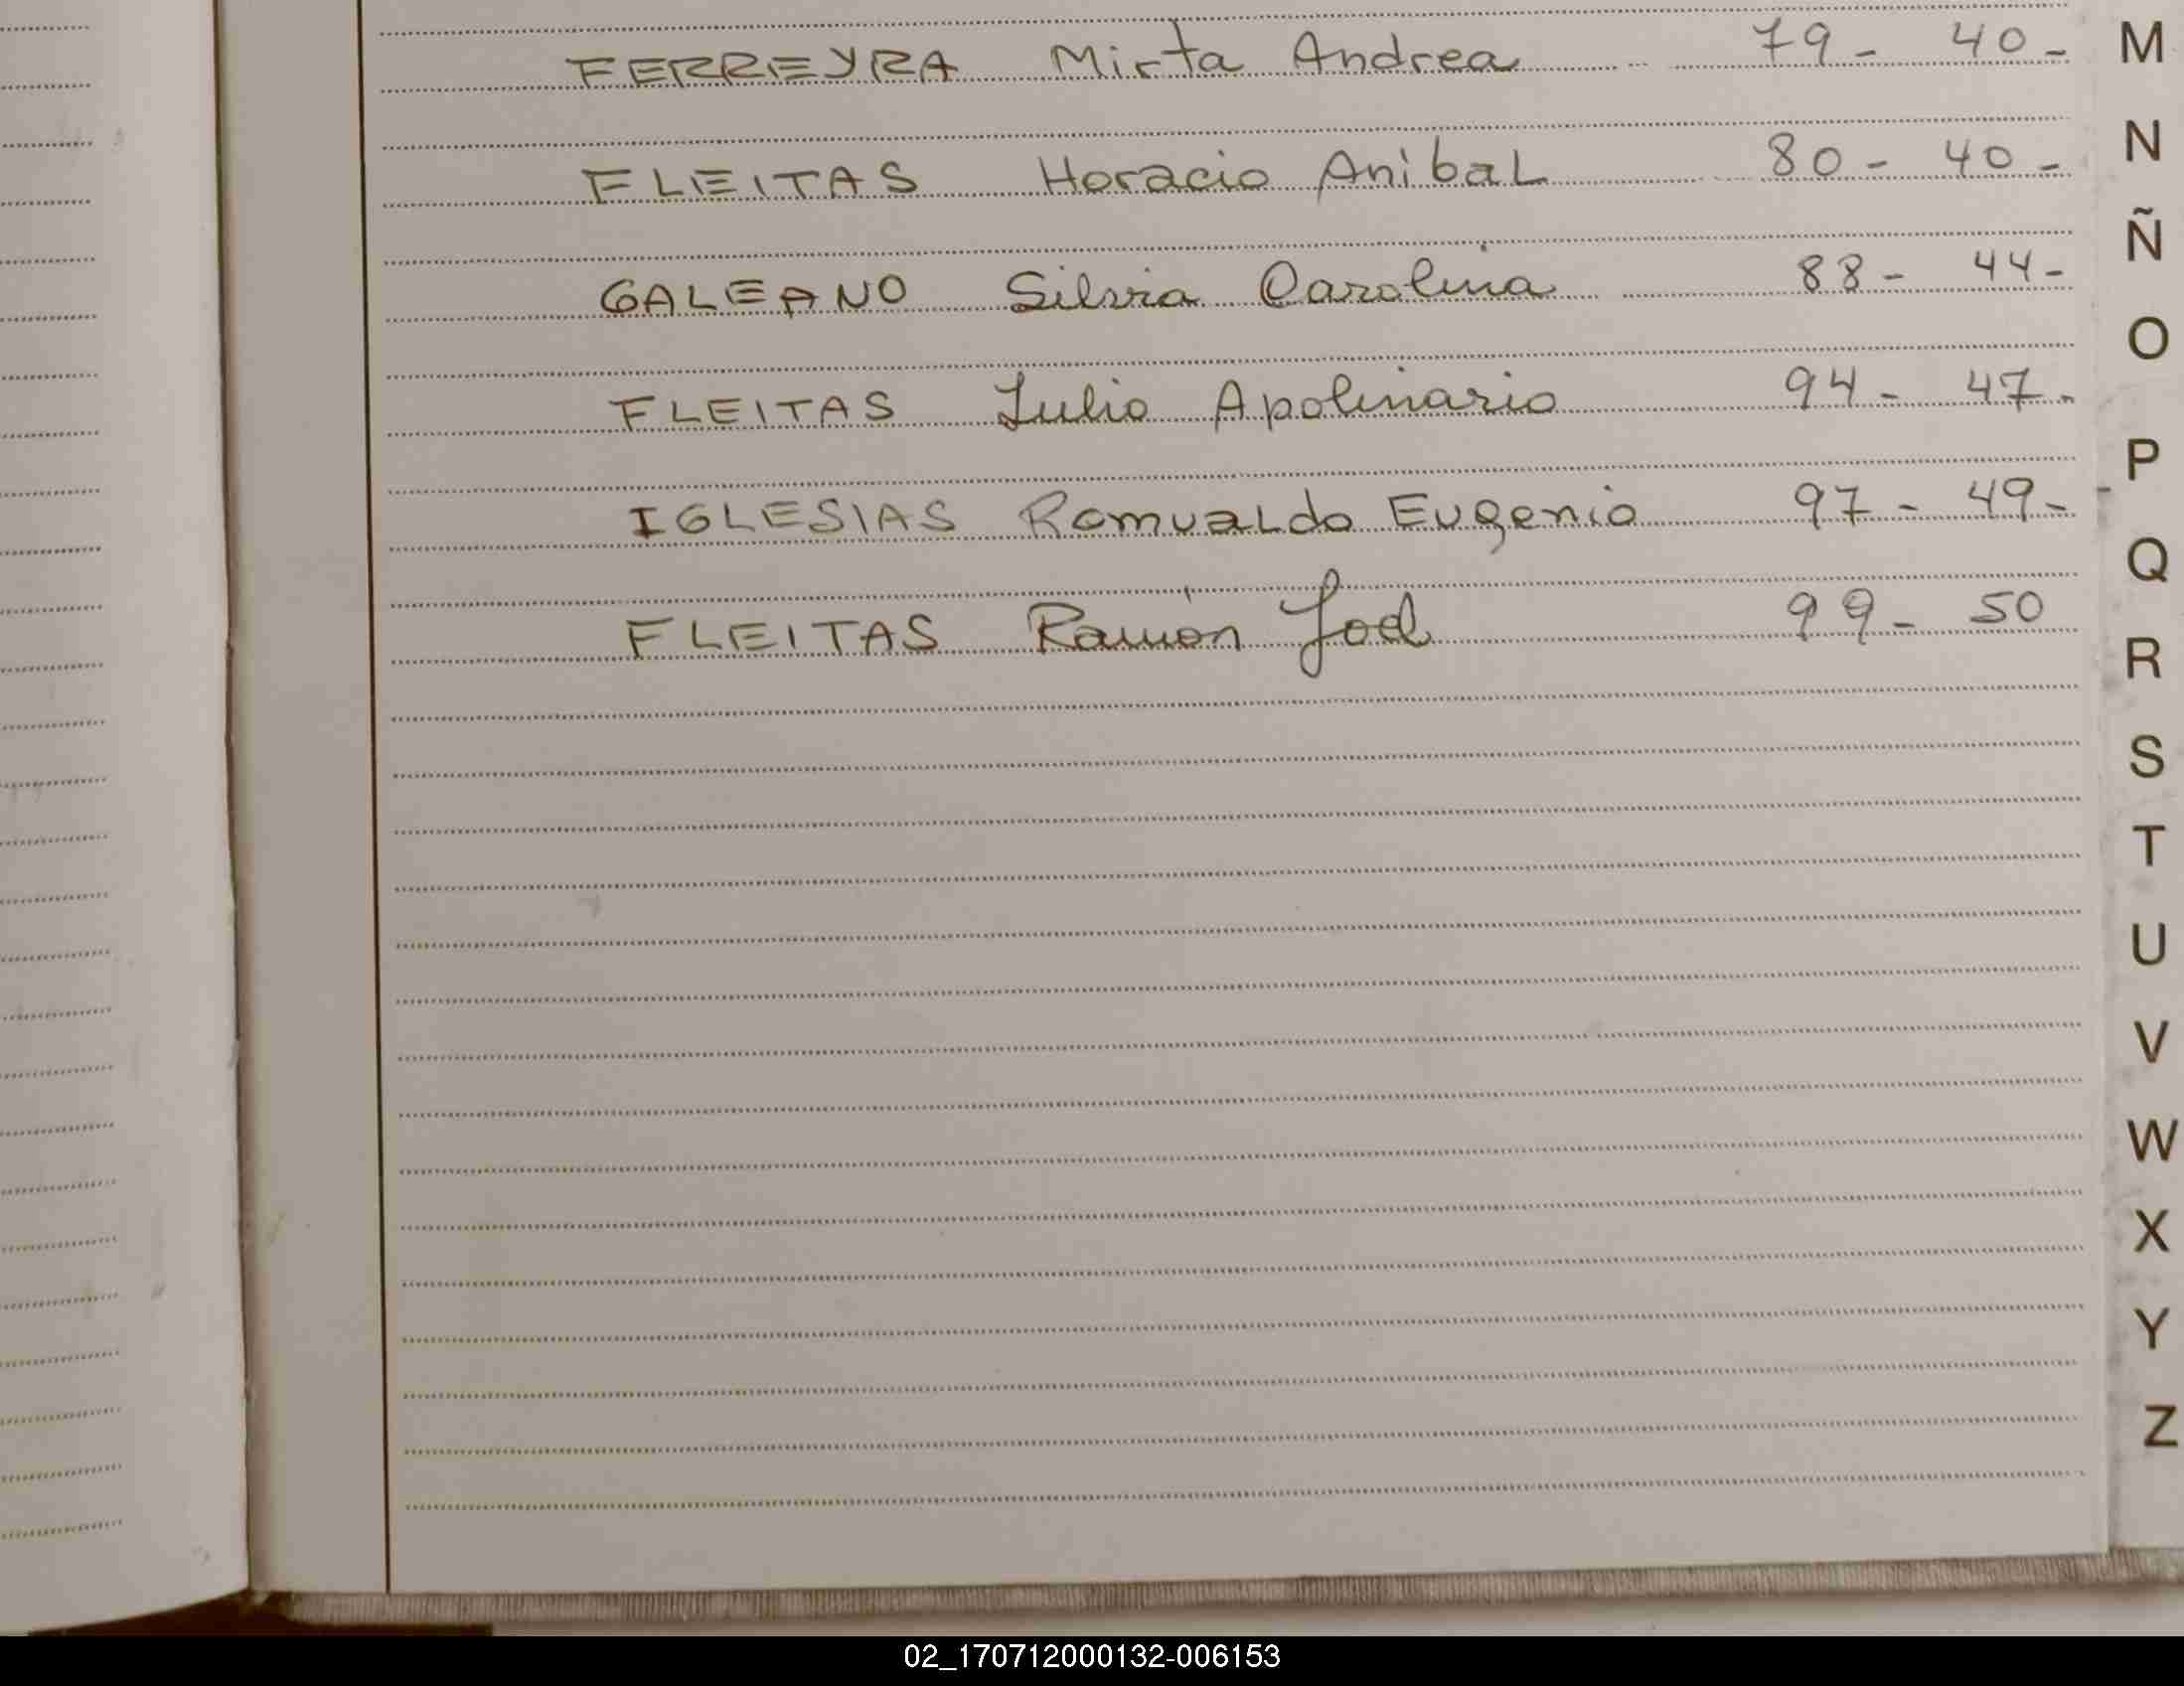 FERREYRA Mirta Andrea 79 - 40 -
FLEITAS Horacio Anibal 80 - 40 -
GALEANO Silvia Carolina 88 - 44 -
FLEITAS Julio Apolinario 94 - 47 -
IGLESIAS Romualdo Eugenio 97 - 49 -
FLEITAS Ramón Joel 99 - 50
M
N
Ñ
O
P
Q
R
S
T
U
V
W
X
Y
Z
02_170712000132-006153